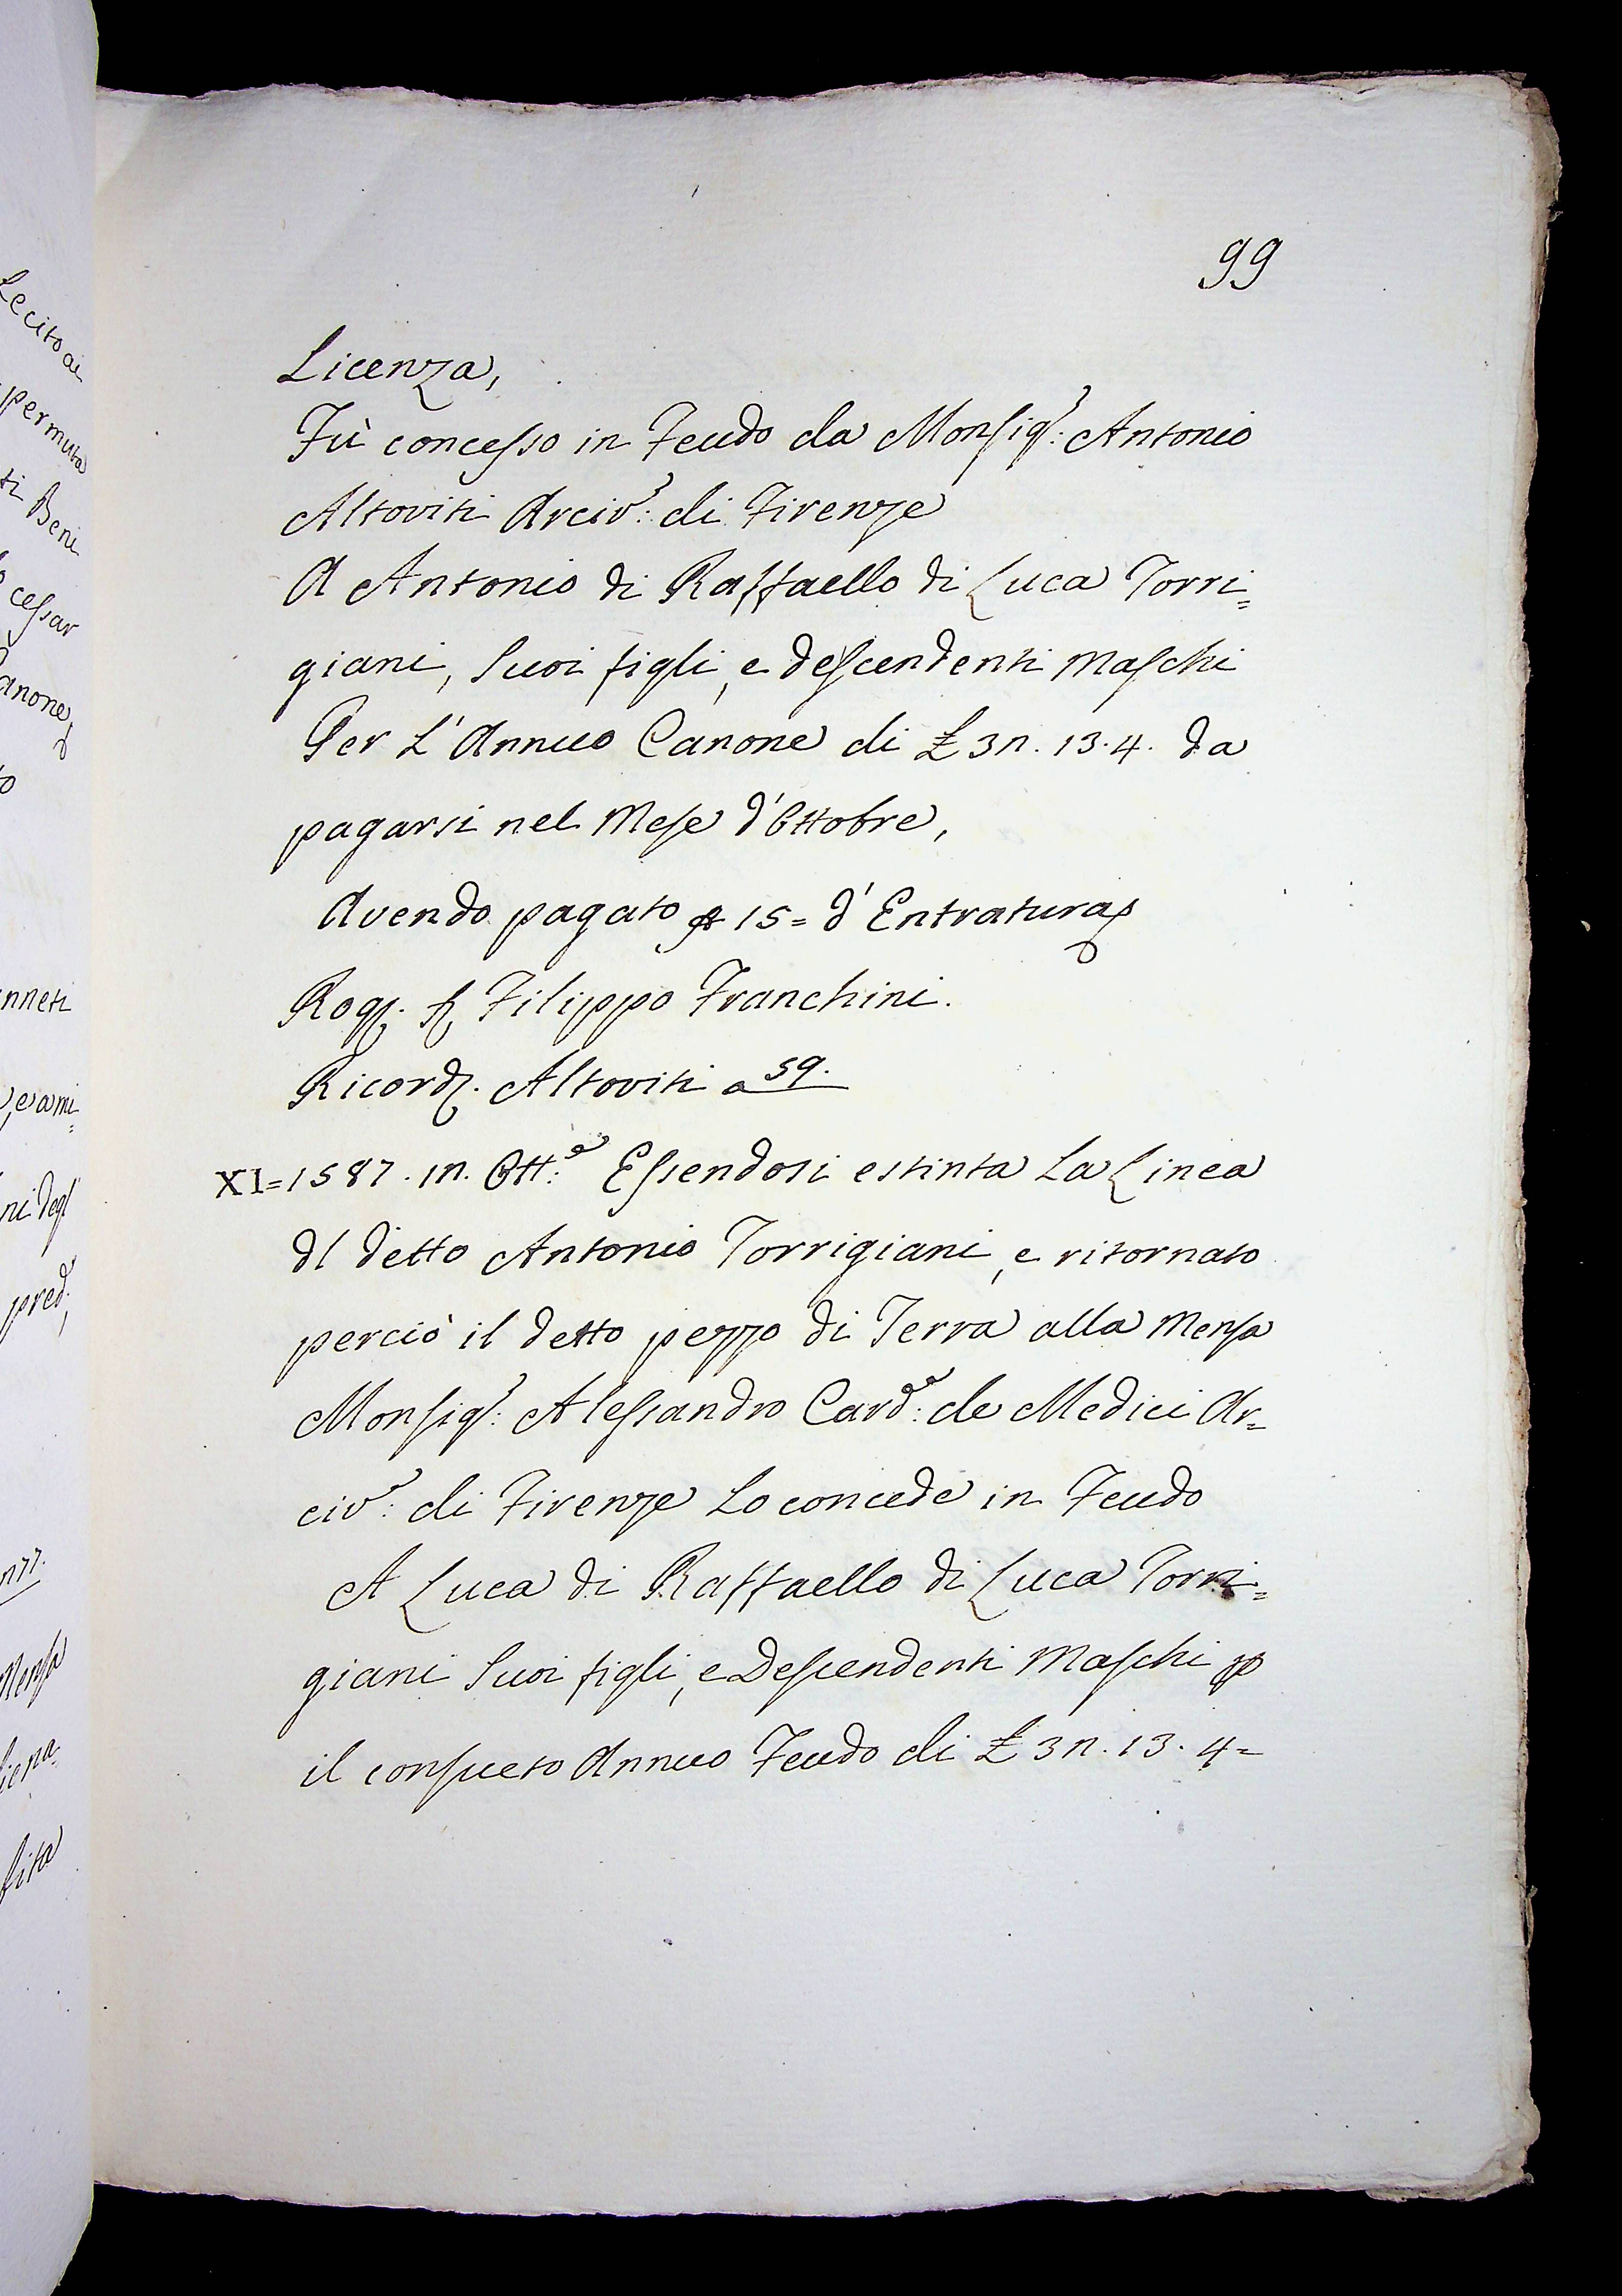 99
Licenza,
Fù concesso in Feudo da Monsig.r: Antonio
Altoviti Arciv.o: di Firenze
A Antonio di Raffaello di Luca Torri=
giani, Suoi figli, e descendenti Maschi
Per L'Annuo Canone di £ 37. 13. 4. da
pagarsi nel Mese d'Ottobre,
Avendo pagato 15= d'Entratura
Rog. Filippo Franchini.
Ricord. Altoviti a 59.
XI=1587. 17. Ott.e: Essendosi estinta La Linea
dl detto Antonio Torrigiani, e ritornato
perciò il detto pezzo di Terra alla Mensa
Monsig.r: Alessandro Card.le: de Medici Ar=
civ.o: di Firenze Lo concede in Feudo
A Luca di Raffaello di Luca Torri=
giani Suoi figli, e Descendenti Maschi p
il consueto Annuo Feudo di £ 37. 13. 4=
Lecito ai
permuta
ti Beni
cessar
Canone,
nneti
e ami=
ni degl'
pred.
Mensa